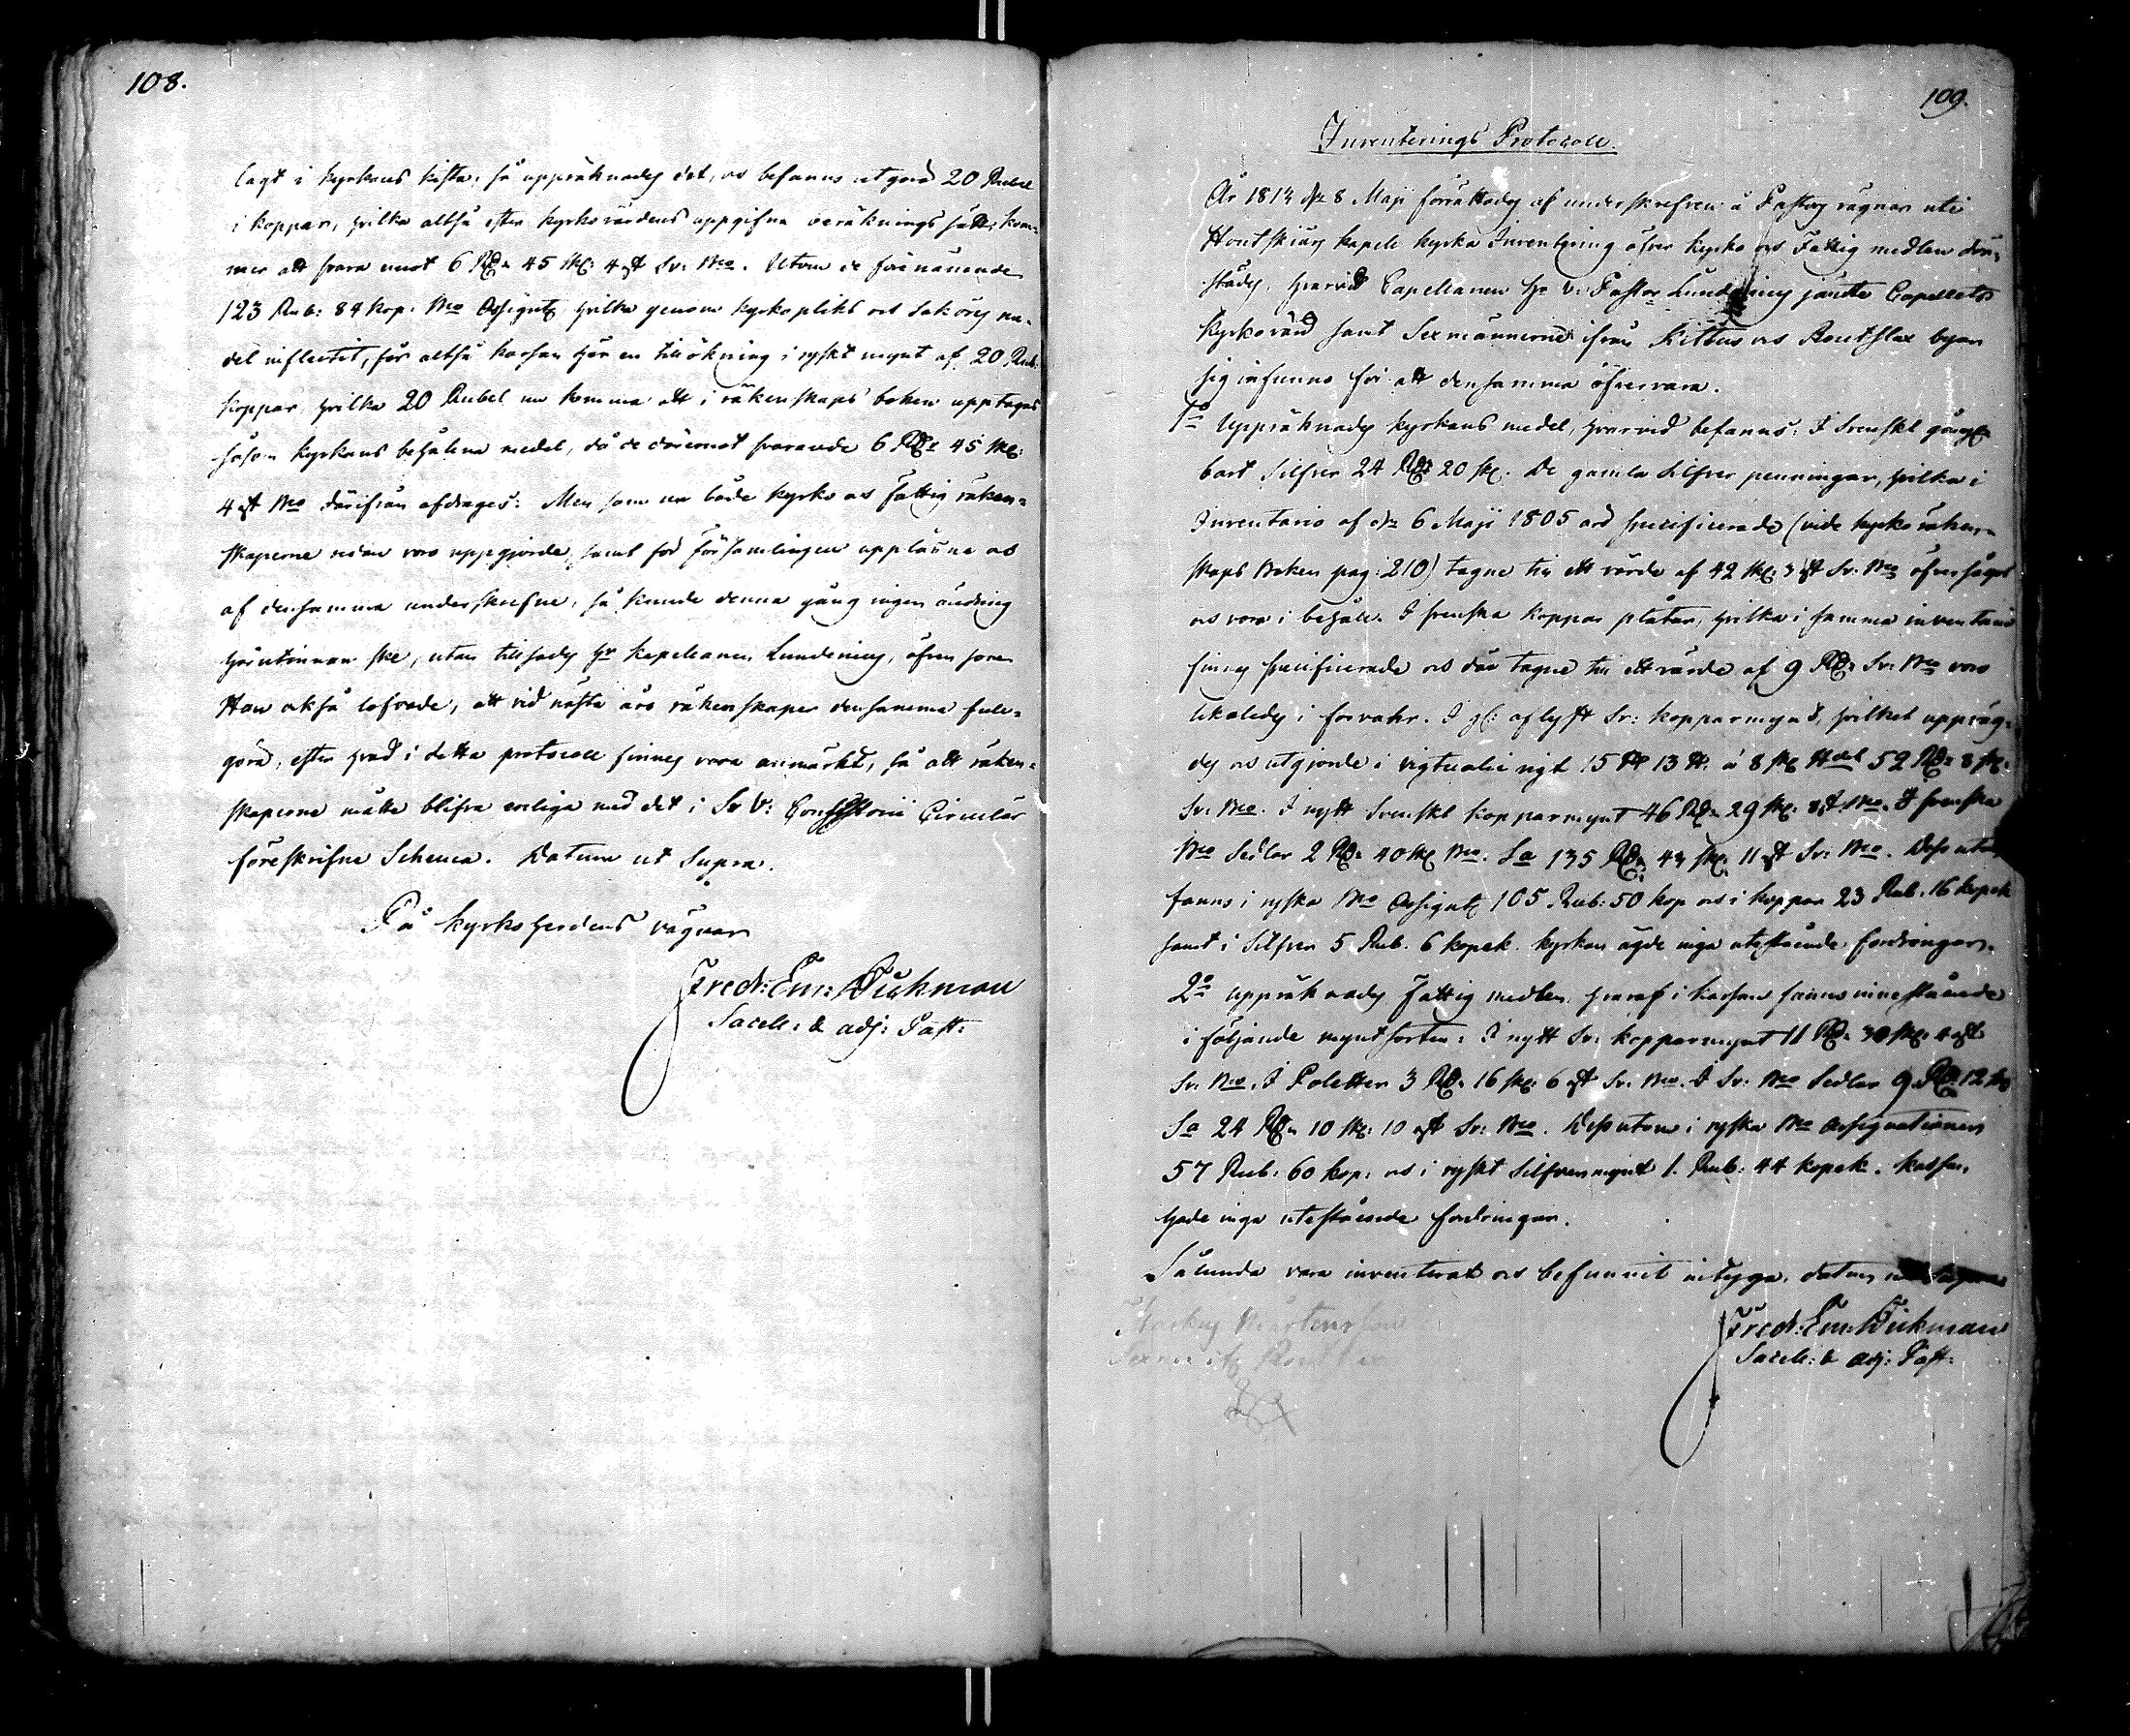 108.
lagt i kyrkans kista, så uppräknades det, och befanns utgöra 20 Rubel
i koppar, hvilka altså efter kyrkovärdens uppgifne beräknings sätt, kom-
mer att svara emot 6 Rd: 45 sk: 4 rst Sv: Bco. Utom de förenämnde
123 Rub: 84 kop: Bco Assignat: hvilka genom kyrkoplikt och Saköres me-
del influtit, får altså kassan här en tillökning i ryskt mynt af 20 Rub:
koppar, hvilka 20 Rubel nu komma att i räkenskaps boken upptagas
såsom kyrkans behållna medel, då de däremot svarande 6 Rd: 45 sk:
4 rst Bco därifrån afdrages. Men som nu både kyrko och Fattig räken-
skaperne redan voro uppgjorde, samt för Församlingen upplästne och
af densamma underskrefne, så kunde denna gång ingen ändring
härutinnan ske, utan tillsades Hr kapellanen Lundening, äfven som
Han också lofvade, att vid nästa års räkenskaper densamma full-
göra, efter hvad i detta protocoll finnes vara anmärkt, så att räken-
skaperne måtte blifva enliga med det i Sv. V: Consistorii Circulär
föreskrifne Schema. Datum ut Supra.
På kyrkoherdens vägnar
Fred: Em: Wickman
Sacell: & adj: Past:
109.
Inventerings Protocoll.
År 1813 d: 8 Maji förrättades af underskrefven å Pastors vägnar uti
Houtskiärs kapell kyrka Inventering öfver kyrko och Fattig medlen där-
städes, hvarvid Capellanen Hr V: Pastor Lundening jämte Capellets
kyrkovärd samt Sexmännerne ifrån Kittuis och Routslax byar
sig infunno för att densamma öfvervara.
1o Uppräknades kyrkans medel, hvarvid befanns: I Svenskt gång-
bart Silfver 24 Rd: 20 sk. De gamla Silfver penningar, hvilka i
Inventario af d: 6 Maji 1805 äro specificerade (vide kyrko räken-
skaps Boken pag: 210) tagne till ett värde af 42 sk: 3 rst Sv: Bco öfversågos
och voro i behåll. I svenska koppar plåtar, hvilka i samma inventario
finnes specificerade och där tagne till ett värde af 9 Rd: Sv: Bco voro
likaledes i förvahr. I gl: aflyst Sv: kopparmynt, hvilket uppväg-
des och utgjorde i victualie vigt 15 L℔ 13 ℔. á 8 sk ℔det 52 Rd: 8 sk:
Sv: Bco. I nytt Svenskt kopparmynt 46 Rd: 29 sk: 8 rst Bco. I svenska
Bco Sedlar 2 Rd: 40 sk Bco. Sa 135 Rd: 43 sk: 11 rst Sv: Bco. Dessutom
fanns i ryska Bco Assignat: 105 Rub: 50 kop och i koppar 23 Rub. 16 kopek
samt i Silfver 5 Rub. 6 kopek. kyrkan ägde inga utestående fordringar.
2o Uppräknades Fattig medlen, hvaraf i kassan fanns innestående
i följande myntsorter: I nytt Sv: kopparmynt 11 Rd: 30 sk: 4 rst
Sv: Bco. I Poletter 3 Rd: 16 sk: 6 rst Sv: Bco. I Sv: Bco Sedlar 9 Rd: 12 sk
Sa 24 Rd: 10 sk: 10 rst Sv: Bco. Dessutom i ryska Bco Assignationer
57 Rub: 60 kop: och i ryskt Silfvermynt 1. Rub: 44 kopek. Kassan
hade inga utestående fordringar.
Sålunda vara inventerat och befunnit intyga, datum ut Supra
Fred: Em: Wickman
Sacell: & Adj: Past:
Mårtensson